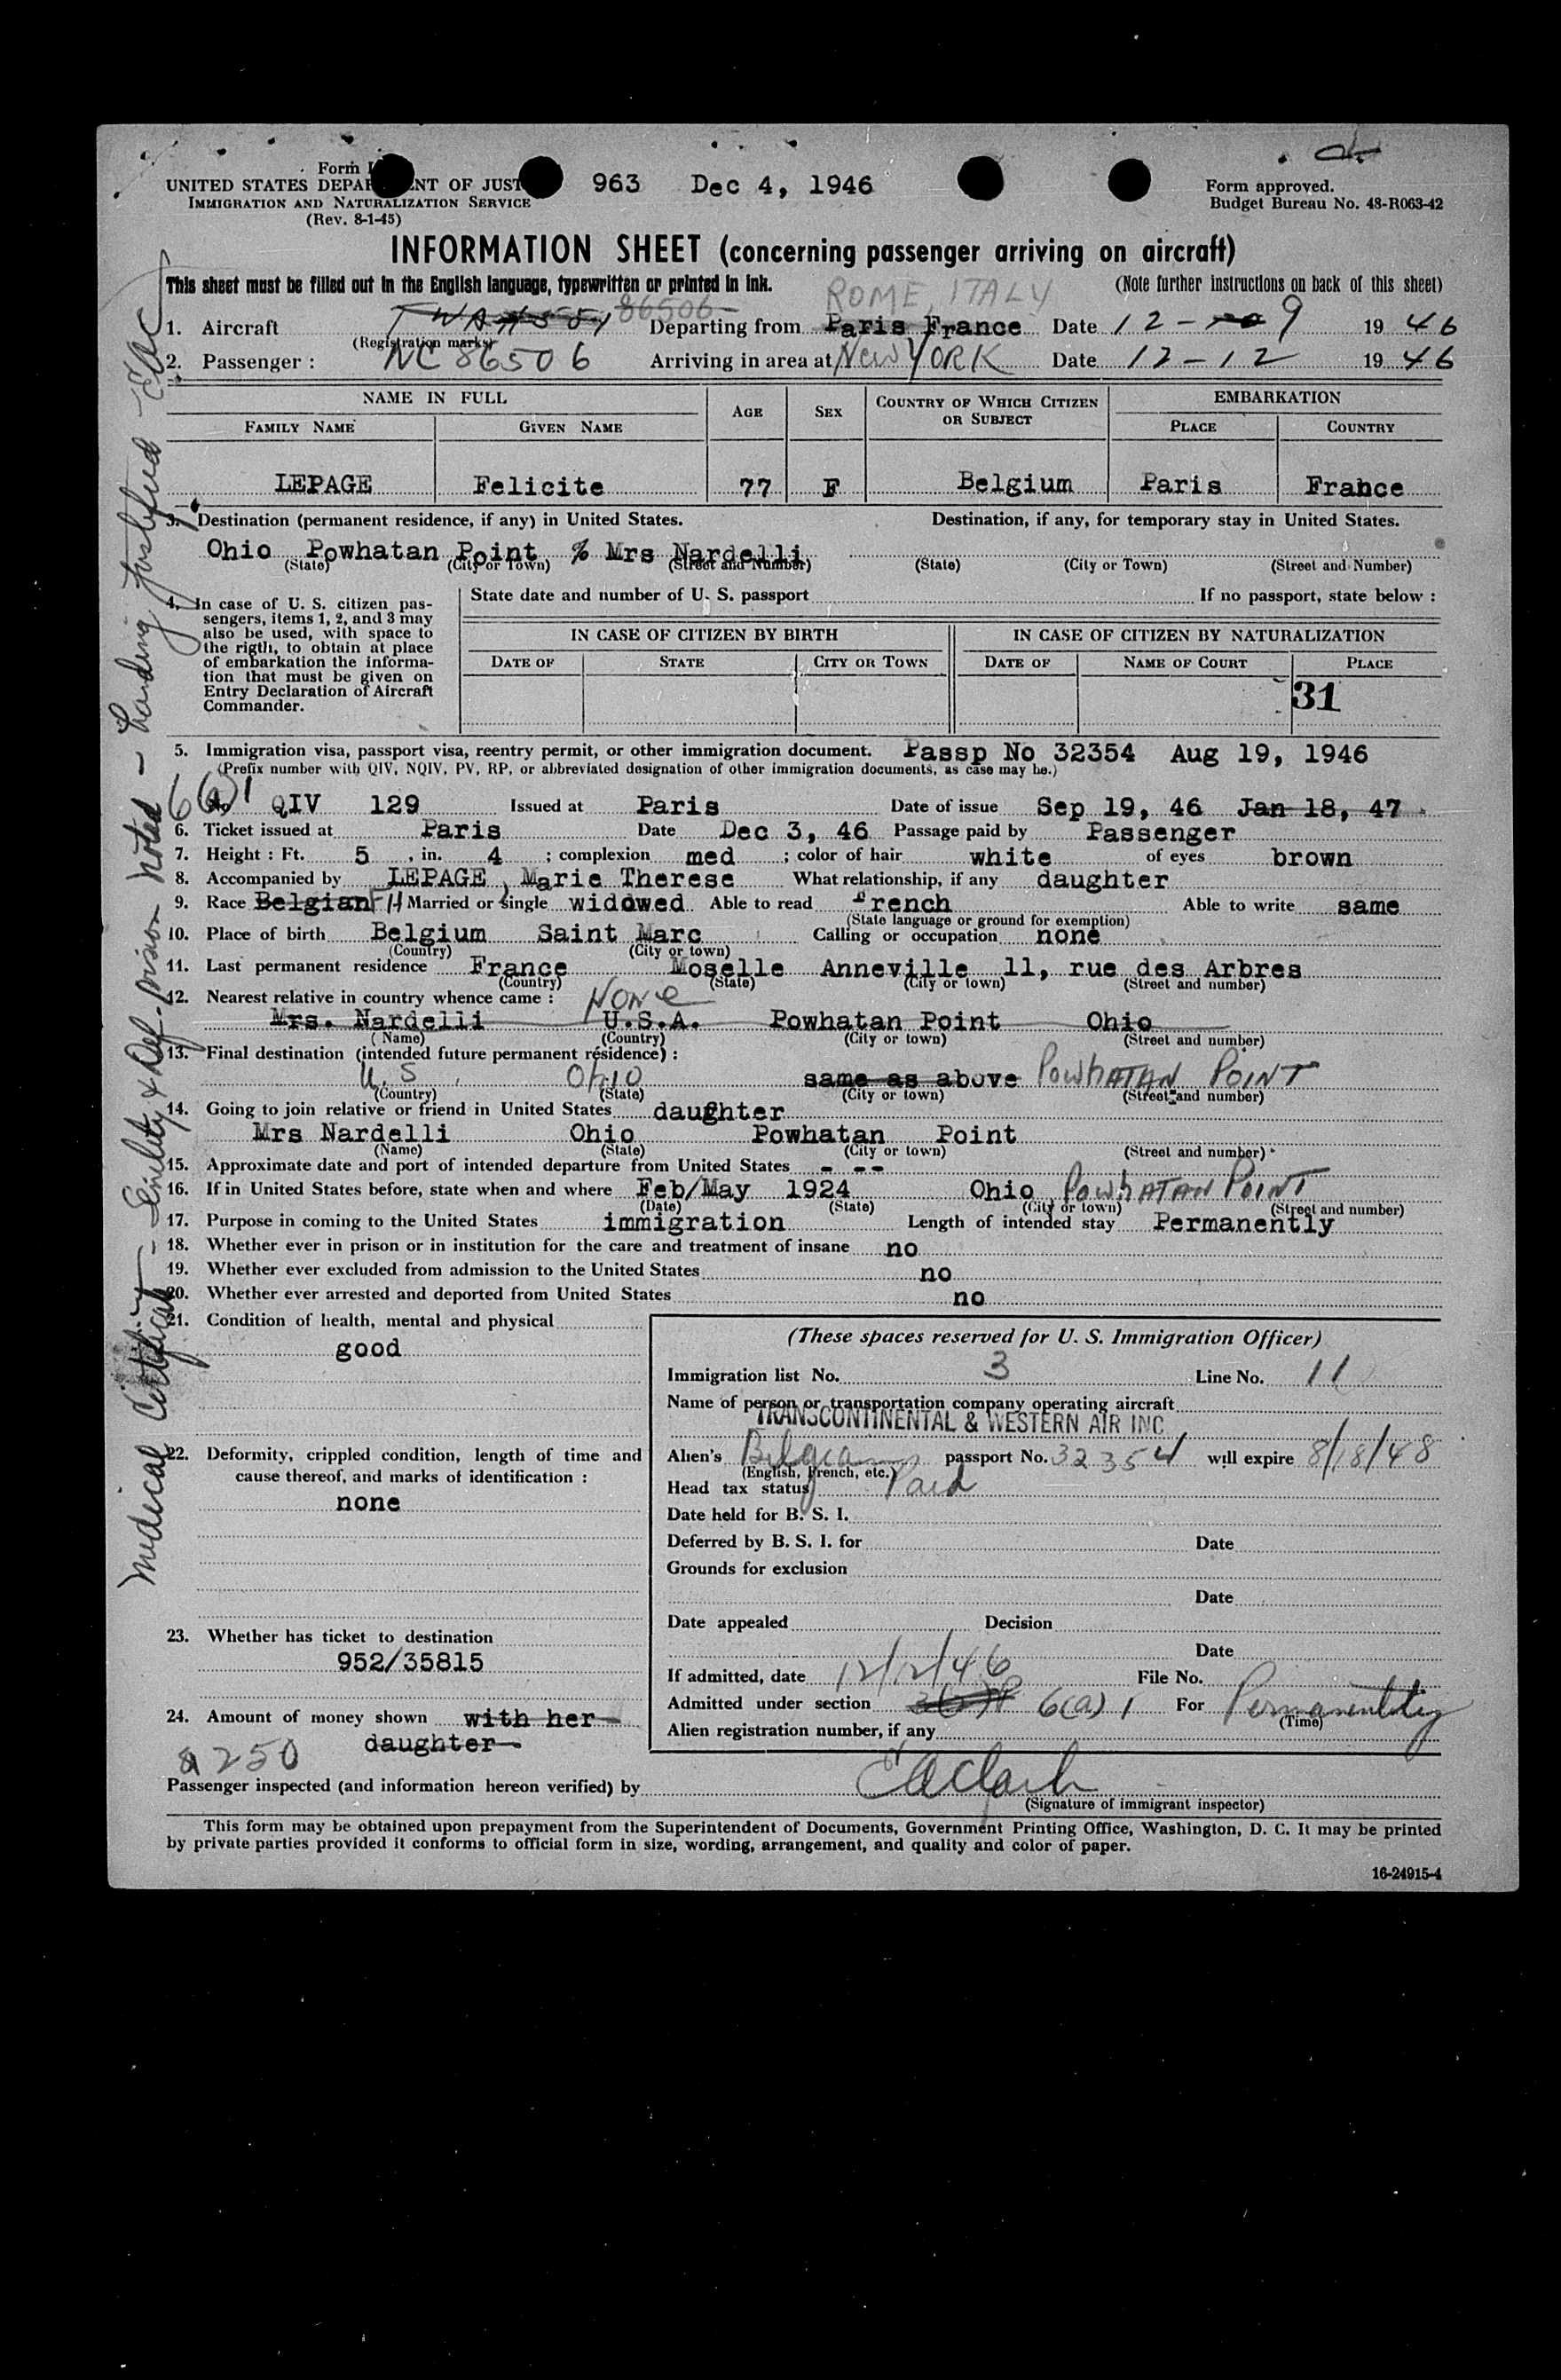 Form
UNITED STATES DEPA NT OF JUST 963 Dec 4, 1946 Form approved.
IMMIGRATION AND NATURALIZATION SERVICE Budget Bureau No. 48-R063-42
(Rev. 8-1-45)
INFORMATION SHEET (concerning passenger arriving on aircraft)
This sheet must be filled out in the English language, typewritten or printed in ink. (Note further instructions on back of this sheet)
86506 ROME, ITALY
1. Aircraft TWA Departing from Paris France Date 12- 9 1946
(Registration marks)
2. Passenger : NC 86506 Arriving in area at New YORK Date 12-12 1946
NAME IN FULL AGE SEX COUNTRY OF WHICH CITIZEN OR SUBJECT EMBARKATION
FAMILY NAME GIVEN NAME PLACE COUNTRY
LEPAGE Felicite 77 F Belgium Paris France
3. Destination (permanent residence, if any) in United States. Destination, if any, for temporary stay in United States.
Ohio Powhatan Point % Mrs Nardelli
(State) (City or Town) (Street and Number) (State) (City or Town) (Street and Number)
4. In case of U. S. citizen pas-
sengers, items 1, 2, and 3 may
also be used, with space to
the rigth, to obtain at place
of embarkation the informa-
tion that must be given on
Entry Declaration of Aircraft
Commander.
State date and number of U. S. passport If no passport, state below :
IN CASE OF CITIZEN BY BIRTH IN CASE OF CITIZEN BY NATURALIZATION
DATE OF STATE CITY OR TOWN DATE OF NAME OF COURT PLACE
31
5. Immigration visa, passport visa, reentry permit, or other immigration document. Passp No 32354 Aug 19, 1946
(Prefix number with QIV, NQIV, PV, RP, or abbreviated designation of other immigration documents, as case may be.)
6(a)1 QIV 129 Issued at Paris Date of issue Sep 19, 46 Jan 18, 47
6. Ticket issued at Paris Date Dec 3, 46 Passage paid by Passenger
7. Height : Ft. 5 , in. 4 ; complexion med ; color of hair white of eyes brown
8. Accompanied by LEPAGE, Marie Therese What relationship, if any daughter
9. Race Belgian FH Married or single widowed Able to read French Able to write same
(State language or ground for exemption)
10. Place of birth Belgium Saint Marc Calling or occupation none
(Country) (City or town)
11. Last permanent residence France Moselle Anneville 11, rue des Arbres
(Country) (State) (City or town) (Street and number)
12. Nearest relative in country whence came : None
Mrs. Nardelli U.S.A. Powhatan Point Ohio
(Name) (Country) (City or town) (Street and number)
13. Final destination (intended future permanent résidence) :
U.S. Ohio same as above POWHATAN POINT
(Country) (State) (City or town) (Street and number)
14. Going to join relative or friend in United States daughter
Mrs Nardelli Ohio Powhatan Point
(Name) (State) (City or town) (Street and number)
15. Approximate date and port of intended departure from United States - --
16. If in United States before, state when and where Feb/May 1924 Ohio POWHATAN POINT
(Date) (State) (City or town) (Street and number)
17. Purpose in coming to the United States immigration Length of intended stay Permanently
18. Whether ever in prison or in institution for the care and treatment of insane no
19. Whether ever excluded from admission to the United States no
20. Whether ever arrested and deported from United States no
21. Condition of health, mental and physical
good
22. Deformity, crippled condition, length of time and
cause thereof, and marks of identification :
none
23. Whether has ticket to destination
952/35815
24. Amount of money shown with her
daughter.
250
(These spaces reserved for U. S. Immigration Officer)
Immigration list No. 3 Line No. 11
Name of person or transportation company operating aircraft
TRANSCONTINENTAL & WESTERN AIR INC
Alien's Belgian passport No. 32354 will expire 8/18/48
(English, French, etc.)
Head tax status Paid
Date held for B. S. I.
Deferred by B. S. I. for Date
Grounds for exclusion
Date
Date appealed Decision
Date
If admitted, date 12/12/46 File No.
Admitted under section 6(a)1 For Permanently
(Time)
Alien registration number, if any
Passenger inspected (and information hereon verified) by EAClark
(Signature of immigrant inspector)
This form may be obtained upon prepayment from the Superintendent of Documents, Government Printing Office, Washington, D. C. It may be printed
by private parties provided it conforms to official form in size, wording, arrangement, and quality and color of paper.
16-24915-4
Medical Certificate - Senility & Def. vision noted - Landing justified - EAC